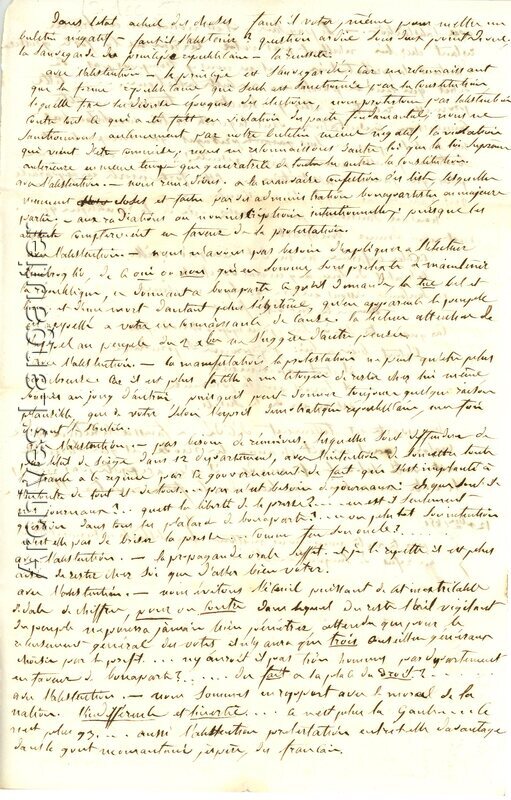 Dans l'état actuel des choses, faut il voter, même pour mettre un
bulletin négatif – faut-il s'abstenir ? question ardue sous deux points de vue,
la sauvegarde du principe républicain – la réussite.
avec l'abstention – le principe est sauvegardé. Car en reconnaissant
que la forme républicaine qui seule est sanctionnée par la constitution
laquelle fixe les diverses époques des élections, nous protestons par l'abstention
contre tout ce qui a été fait en violation du pacte fondamental; nous ne
sanctionnons aucunement par notre bulletin même négatif, la violation
qui vient d'être commise, nous ne reconnaissons d'autre loi que la loi suprême
antérieure en même temps que génératrice de toute autre la constitution.
avec l'abstention. – nous remédions à la mauvaise confection des listes lesquelles
viennent closes et faites par des administrations bonapartistes en majeure
partie. – aux radiations ou non inscriptions intentionnelles; puisque les
compteraient en faveur de la protestation.
avec l'abstention. – nous n'avons pas besoin d'expliquer à l'électeur
l'imbroglio, de ce oui ou non qui en somme, sera probable à maintenir
la république, en donnant à bonaparte ce qu'il demande, la tue bel et
bien et d'une mort d'autant plus légitime, qu'en apparence le peuple
est appelé à voter en connaissance de cause. la lecture attentive de
l'appel au peuple du 2 xbre ne suggère d'autre pensée.
avec l'abstention. – la manifestation, la protestation ne peut qu'être plus
nombreuse car il est plus facile à un citoyen de rester chez lui même
soumis au joug d'autrui puisqu'il peut donner toujours quelque raison
plausible, que de voter selon l'esprit démocratique républicain, une fois
avec l'abstention. – pas besoin de réunions, lesquelles sont défendues de
par l'état de siège dans 12 départements, avec l'intention de soumettre toute
la france à ce régime par ce gouvernement de fait qui s'est implanté à
l'encontre de tout et de tous... pas n'est besoin de journaux: et que sont-ils
ces journaux?.. qu'est la liberté de la presse?.... en est-il seulement
question dans tous les placards de bonaparte?.... ou plutôt son intention
n'est elle pas de briser la presse... comme son oncle?....
avec l'abstention. – la propagande orale suffit. et je le répète il est plus
aisé de rester chez soi que d'aller bien voter.
avec l'abstention. – nous évitons l'écueil puissant de cet inextricable
dédale de chiffres, pour ou contre dans lequel du reste l'œil vigilant
du peuple ne pourra jamais bien pénétrer, attendu que pour le
recensement général des votes il n'y aura que trois conseillers généraux
choisis par le préfet.... n'y aurait-il pas trois hommes par département
en faveur de bonaparte?..... du fait à la place du droit?....
avec l'abstention – nous sommes en rapport avec le moral de la
nation. l'indifférence et l'inertie.... ce n'est plus la Gaule.... ce
n'est plus 93.... aussi l'abstention protestation entre-t-elle davantage
dans le goût incorrigible, j'espère, du français.
Archives Languedoc